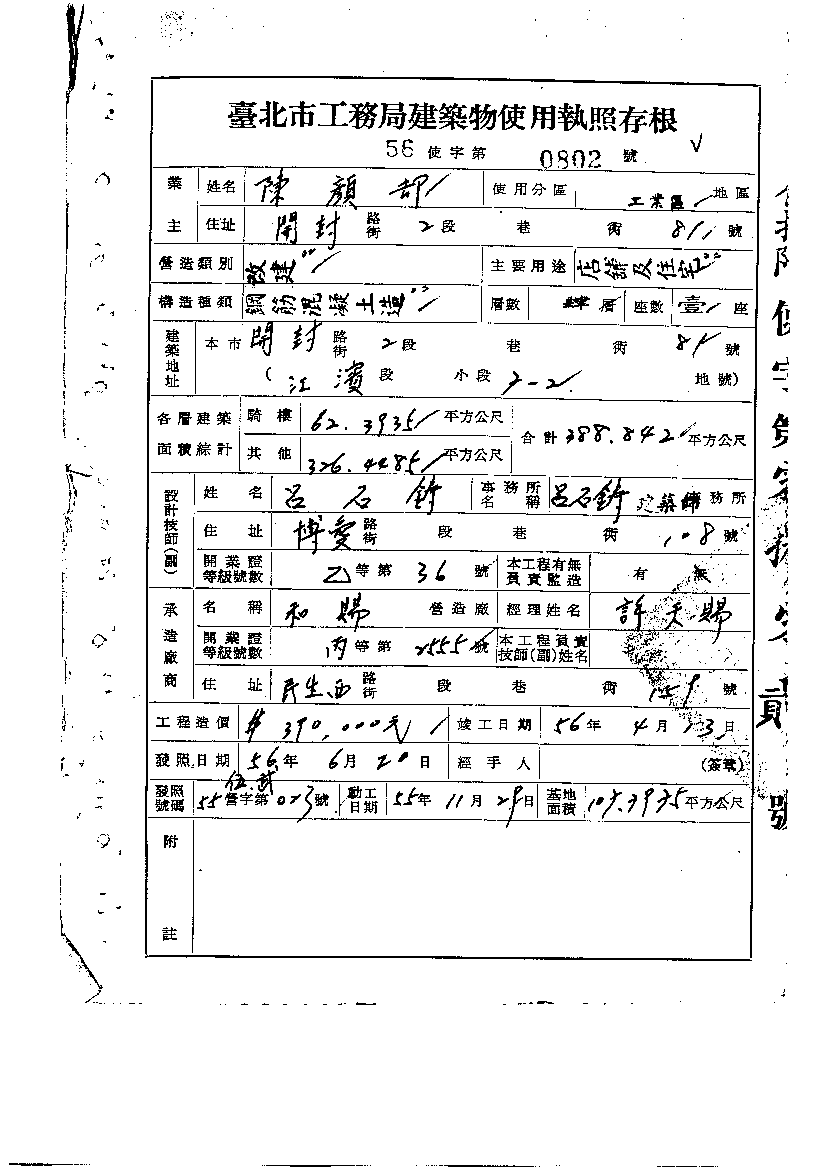 臺北市工務局建築物使用執照存根
56 使字第 0802 號
業主 姓名 陳顏却 使用分區 工業區 地區
住址 開封 路街 2段 巷 衖 81 號
營造類別 改建 主要用途 店舖及住宅
構造種類 鋼筋混凝土造 層數 層 座數 壹 座
建築地址 本市 開封 路街 2段 巷 衖 81 號
(江濱 段 小段 2-2 地號)
各層建築面積綜計 騎樓 62.3935 平方公尺 合計 388.842 平方公尺
其他 326.4485 平方公尺
設計技師(副) 姓名 呂石 事務所名稱 呂石 建築師 務所
住址 博愛 路街 段 巷 衖 108 號
開業證等級號數 乙 等第 36 號 本工程有無負責監造 有 無
承造廠商 名稱 和賜 營造廠 經理姓名 許天賜
開業證等級號數 丙 等第 2555 號 本工程負責技師(副)姓名
住址 民生西 路街 段 巷 衖 159 號
工程造價 $390,000元 竣工日期 56年 4月 23日
發照日期 56年 6月 20日 經手人 (簽章)
發照號碼 55 營字第 023 號 動工日期 55年 11月 29日 基地面積 107.3935 平方公尺
附註
貳
號